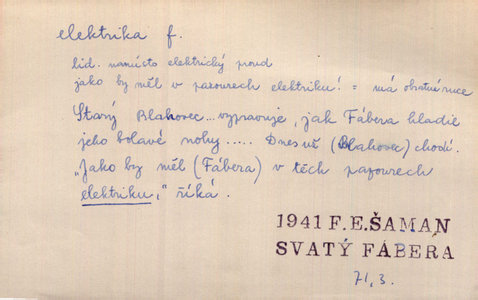 elektrika f.
lid. namísto elektrický proud
jako by měl v pazourech elektriku! = má obratné ruce
Starý Blahovec... vypravuje, jak Fábera hladil
jeho bolavé nohy..... Dnes už (Blahovec) chodí.
"Jako by měl (Fábera) v těch pazourech
elektriku," říká.
1941 F.E.ŠAMAN
SVATÝ FÁBERA
71,3.